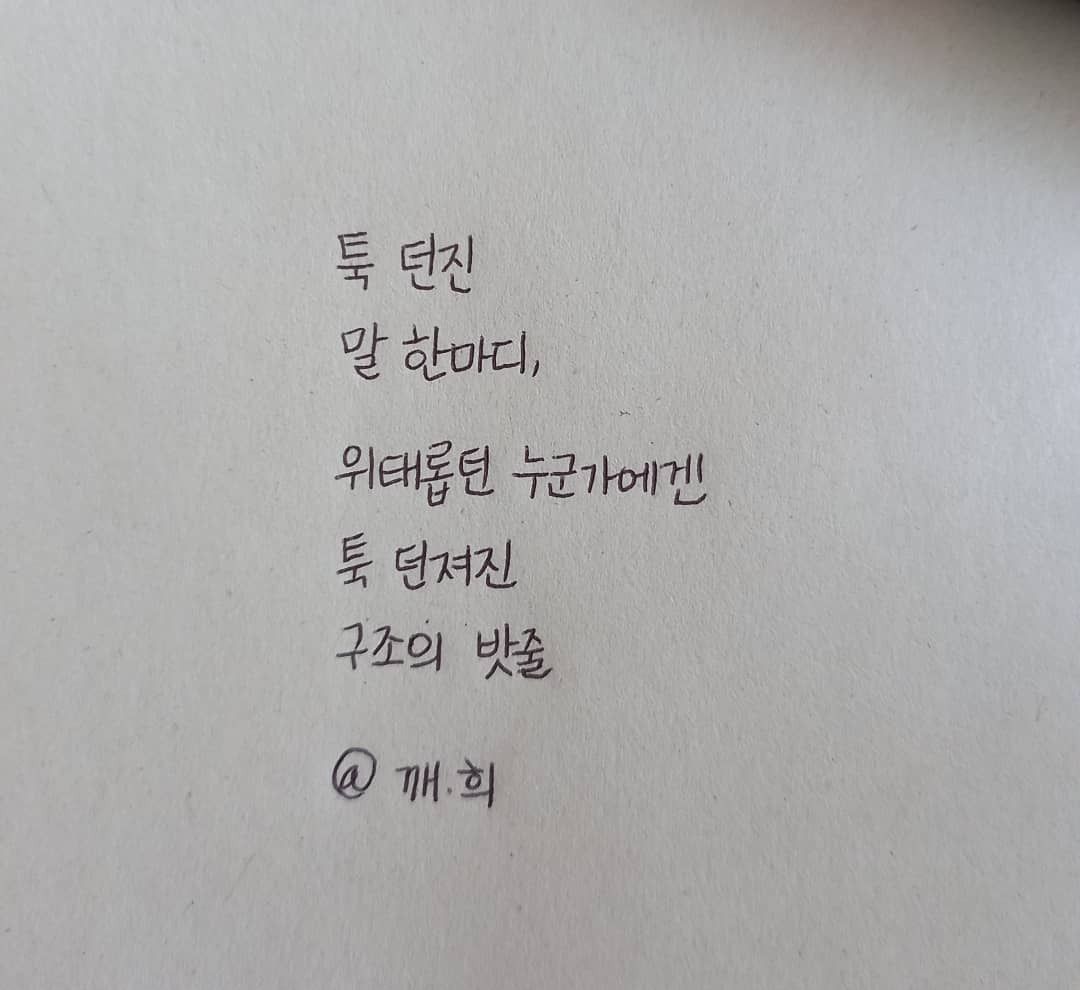 툭 던진
말 한마디,
위태롭던 누군가에겐
툭 던져진
구조의 밧줄
@ 깨.희